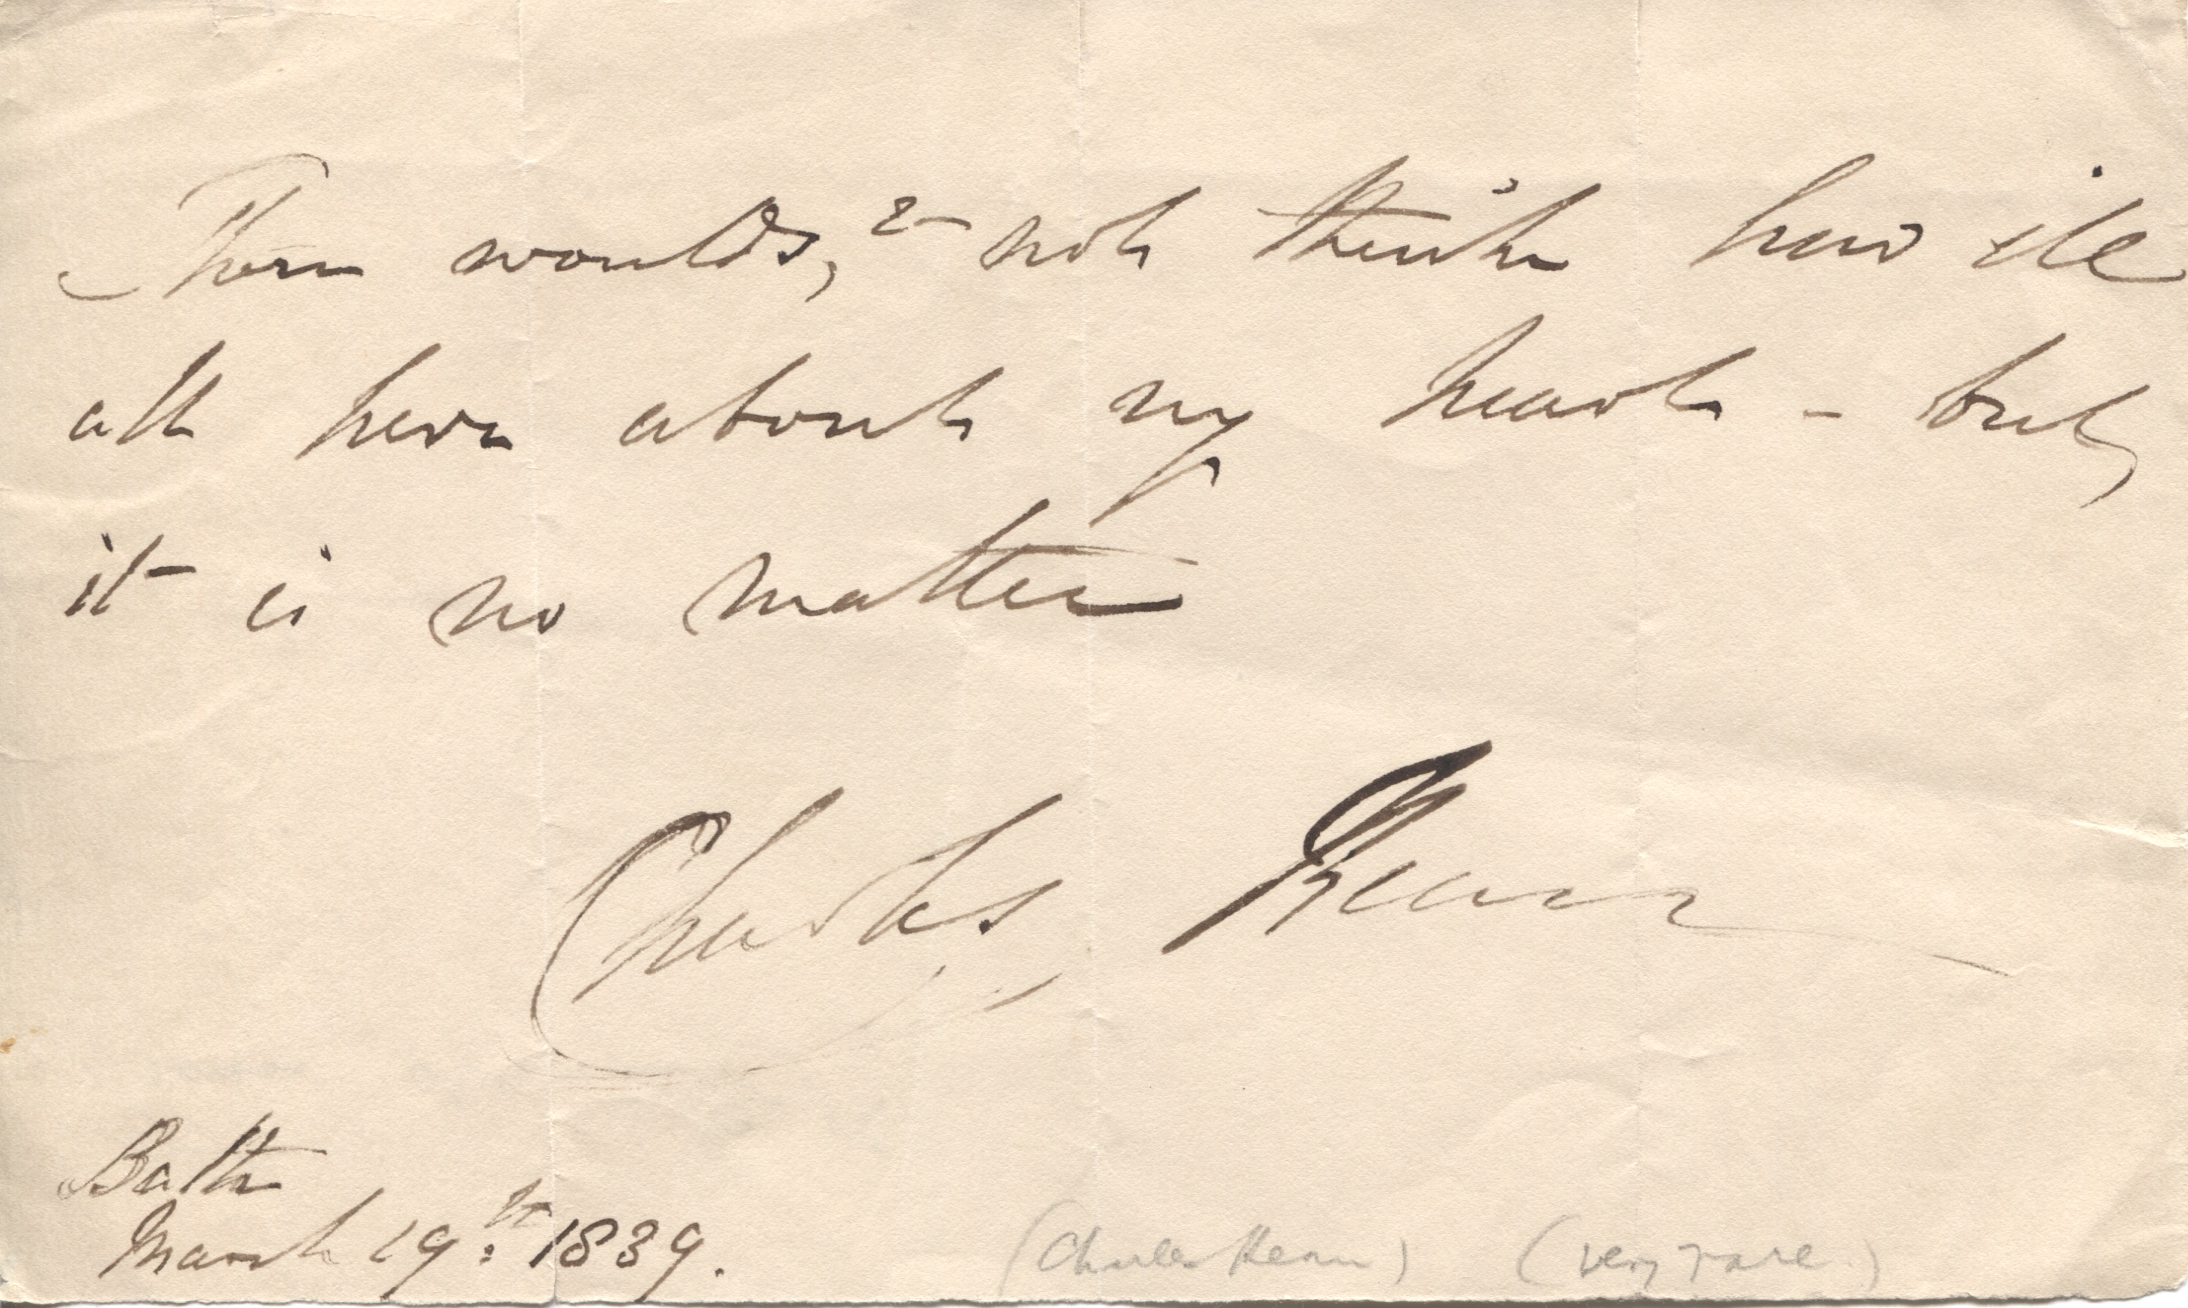 Thou wouldst not think how ill
all here about my heart - but
it is no matter
Charles Kean
Bath
March 19th 1839.
(Charles Kean) (very rare)